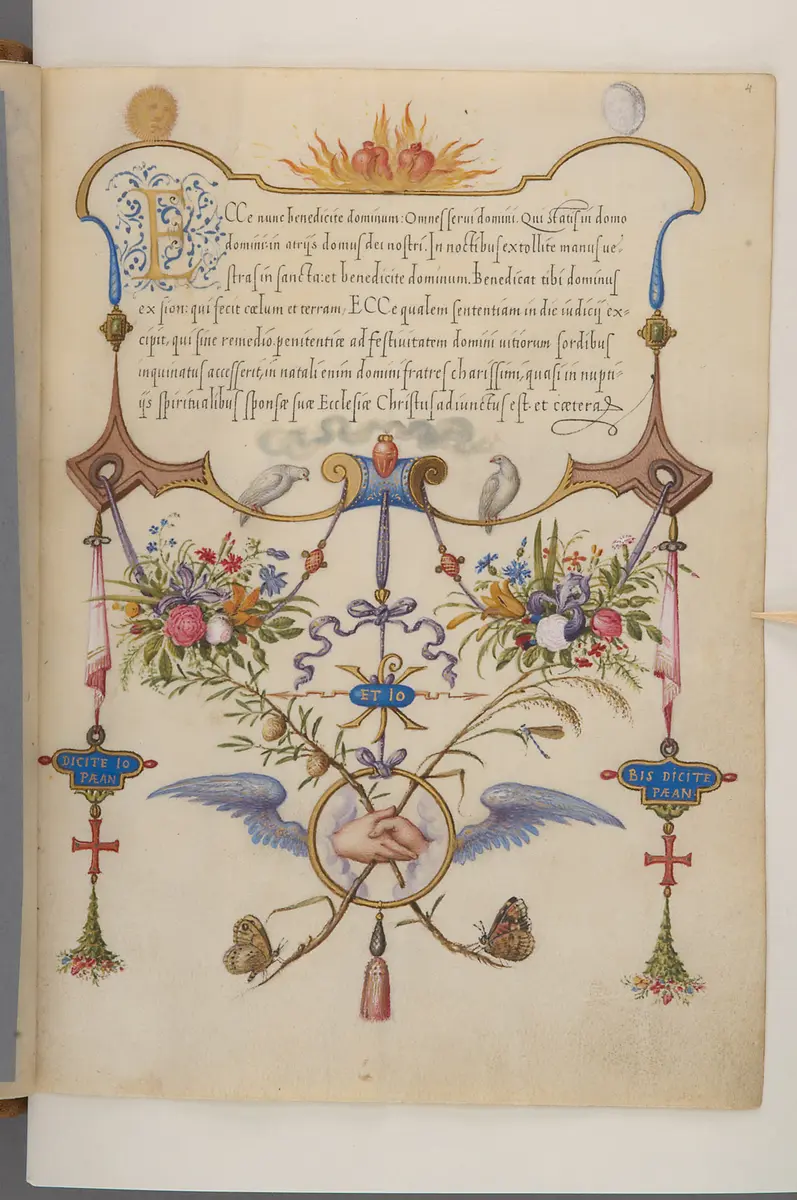 4
ECCe nunc benedicite dominum: Omnes serui domini. Qui statis in domo
domini: in atrijs domus dei nostri. In noctibus extollite manus ue-
stras in sancta: et benedicite dominum. Benedicat tibi dominus
ex sion: qui fecit cœlum et terram, ECCe qualem sententiam in die iudicij ex-
cipit, qui sine remedio penitentiæ ad festiuitatem domini uitiorum sordibus
inquinatus accesserit, in natali enim domini fratres charissimi, quasi in nupti-
ijs spiritualibus sponsæ suæ Ecclesiæ Christus adiunctus est. et cætera
ET IO
DICITE IO
PÆAN
BIS DICITE
PÆAN.